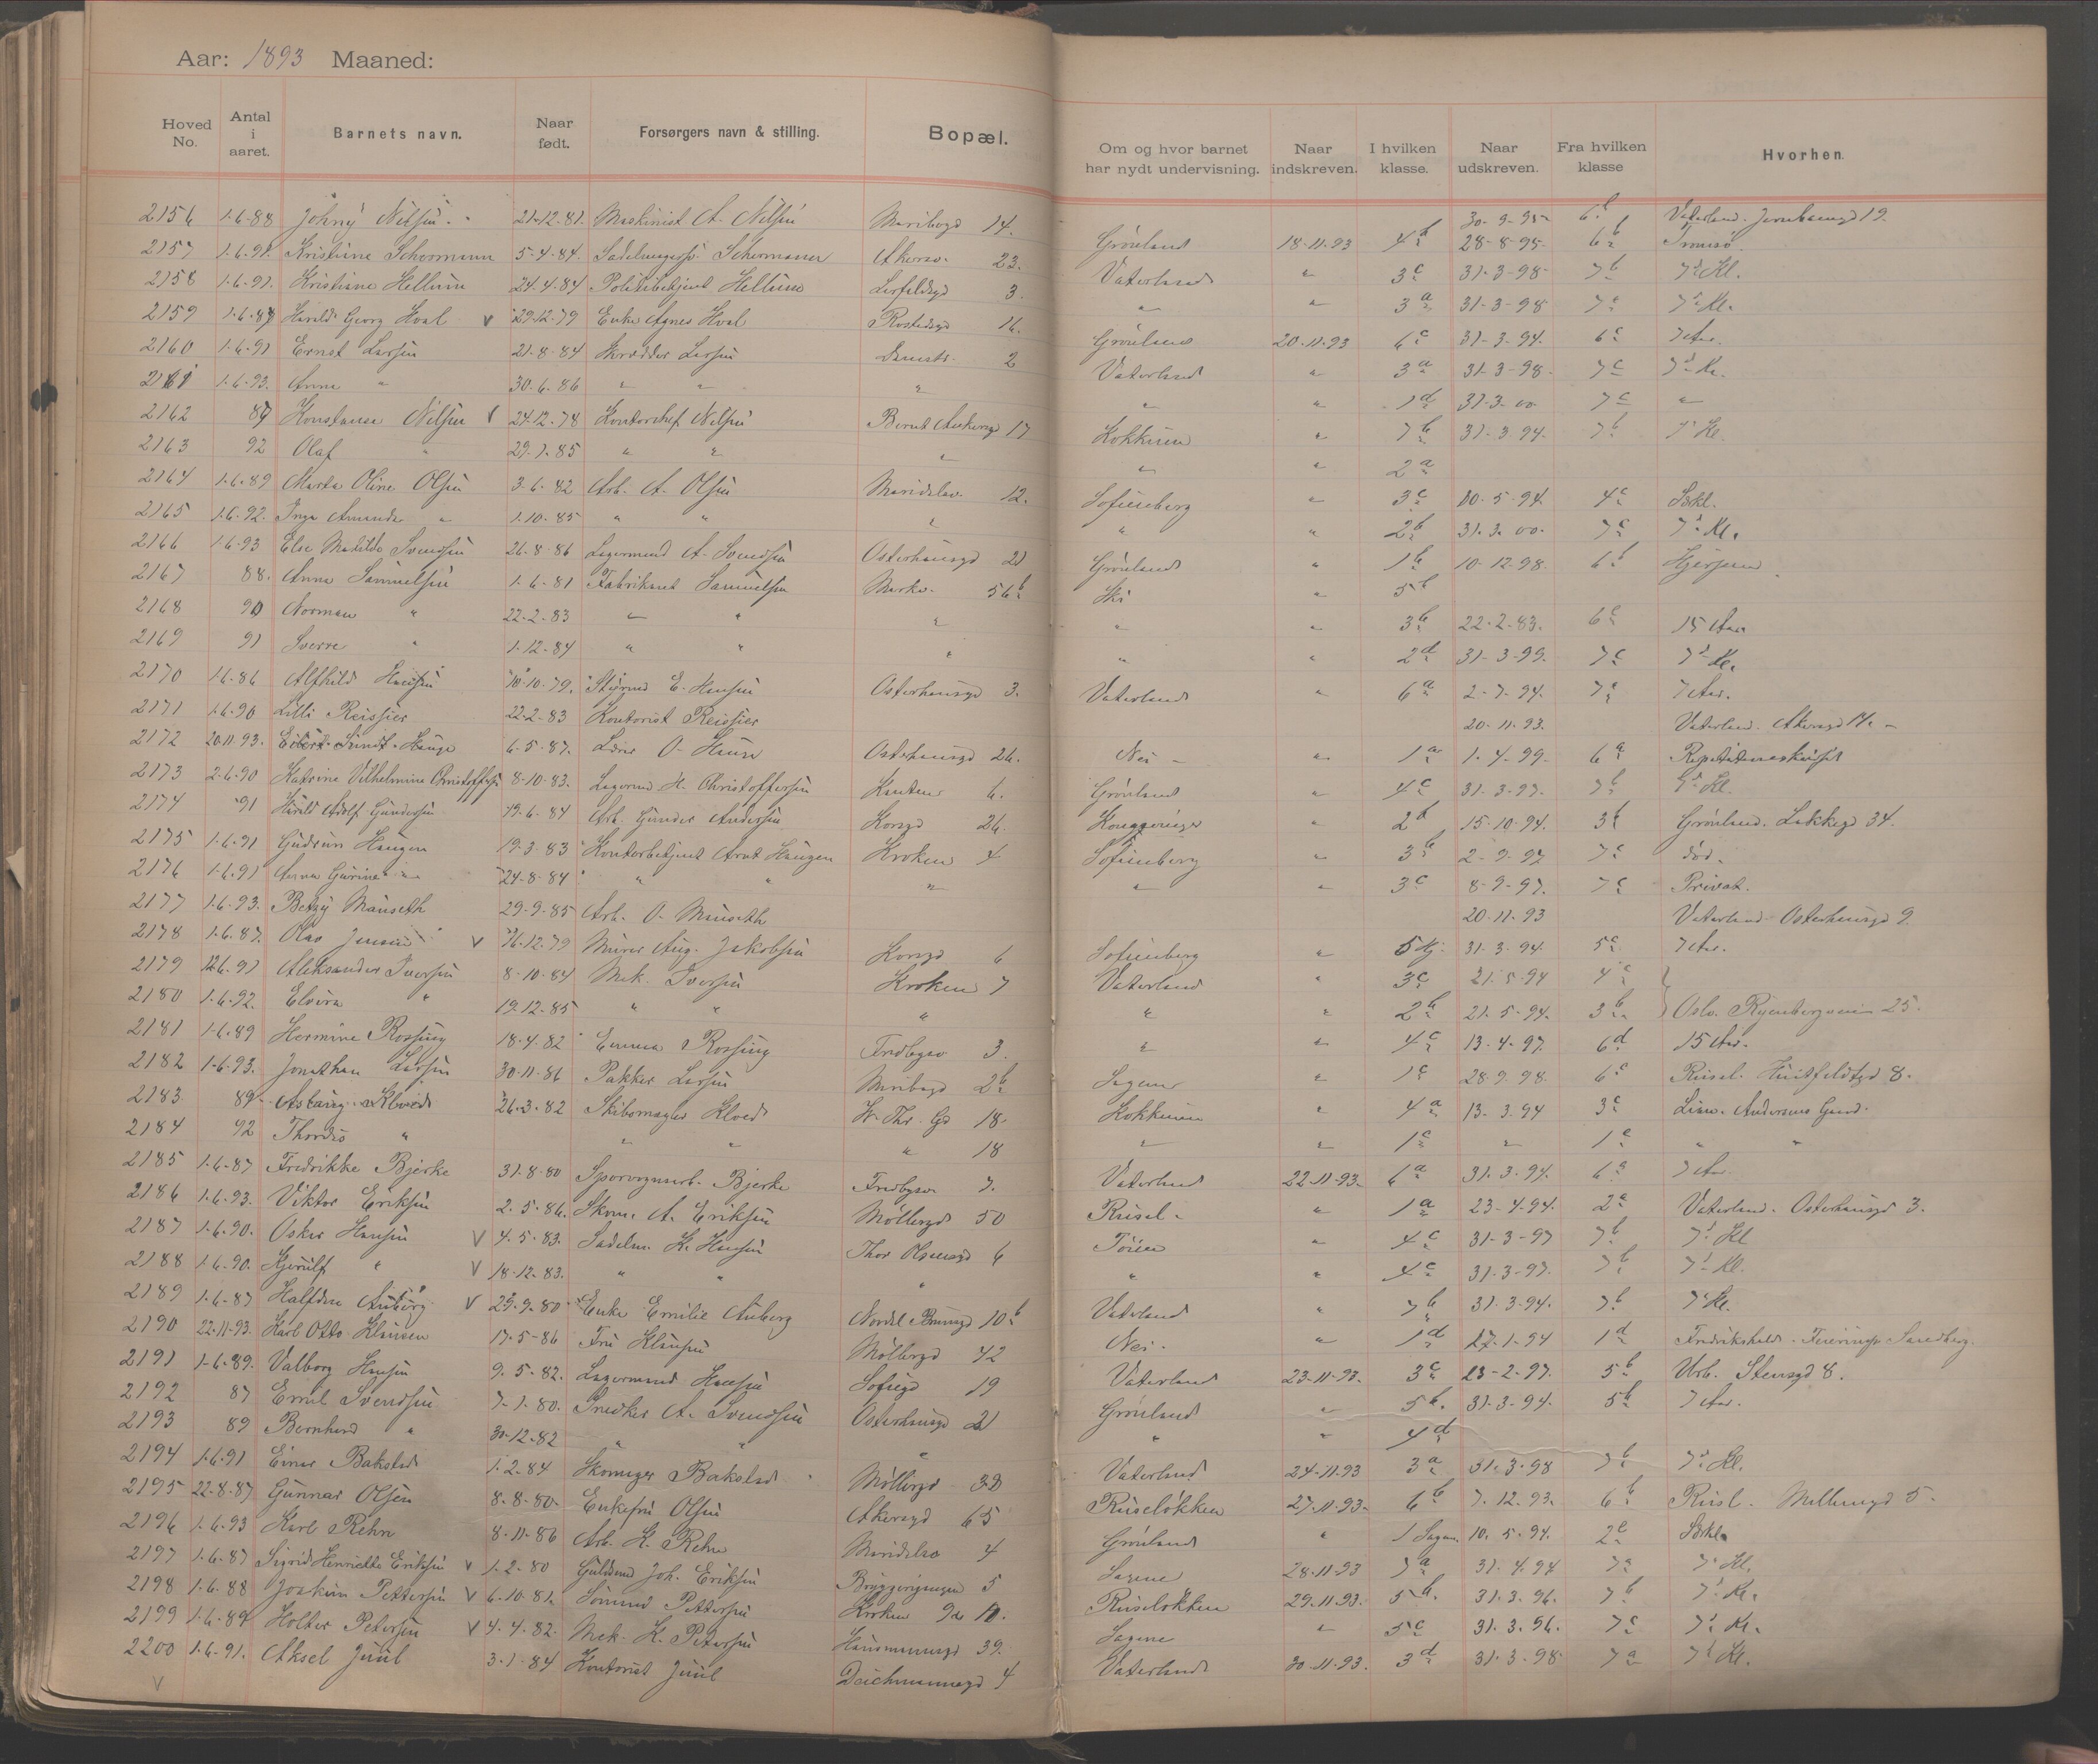 Aar: 1893 Maaned:
Hoved No. Antal i aaret. Barnets navn. Naar født. Forsørgers navn & stilling. Bopæl. Om og hvor barnet har nydt undervisning. Naar indskreven. I hvilken klasse. Naar udskreven. Fra hvilken klasse Hvorhen.
2156 1-6-88 Johny Nilsen 21-12-81. Maskinist A. Nilsen Maribogd 14. 30-9-95 6 Vaterland. 19.
2157 1-6-91. Kristine Schermann 5-4-84. Schermann Akersv. 23. Grønland 18-11-93 4b 28-8-95. 6b Tromsø.
2158 1-6-91. Kristine Hellum 24-4-84 Politibetjent Hellum 3. Vaterland " 3c 31-3-98 7b 7de Kl.
2159 1-6-87 Harald Georg Hval V 29-12-79 Enke Agnes Hval Rostedsgd 16. " 3a 31-3-98 7c 7de Kl.
2160 1-6-91 Ernst Larsen 21-8-84 Skrædder Larsen Damstr. 2 Grønland 20-11-93 6c 31-3-94. 6c 7 Aar.
2161 1-6-93. Anna " 30-6-86 " " " Vaterland " 3a 31-3-98. 7c 7de Kl.
2162 87 Konstanse Nilsen V 24-12-78 Kontorchef Nilsen Bernt Ankersgd 17 " " 1d 31-3-00 7c "
2163 92 Olaf " 29-1-85 " " " Kokkum " 7b 31-3-94. 7b 7de Kl.
2164 1-6-89 Marta Oline Olsen 3-6-82 Arb. A. Olsen Maridalsv. 12. " " 2a
2165 1-6-92. Inga Amanda " 1-10-85 " " " Sofienberg " 3c 10-5-94. 4c Sskl.
2166 1-6-93 Else Matilde Svendsen 26-8-86 Lagermand A. Svendsen Osterhausgd 21 " " 2b 31-3-00. 7c 7de Kl.
2167 88. Anna Samuelsen 1-6-81 Fabrikant Samuelsen Markv. 56b Grønland " 1b 10-12-98. 6b
2168 90 Norman " 22-2-83 " " " Ski " 5b
2169 91 Sverre " 1-12-84 " " " " " 3b 22-2-83. 6c 15 Aar
2170 1-6-86 Alfhild Hansen 10-10-79. Styrmd E. Hansen Osterhausgd 3. " " 2d 31-3-99. 7c 7de Kl.
2171 1-6-90 Lilli Reissier 22-2-83 Kontorist Reissier Vaterland " 6a 2-7-94. 7a 7 Aar.
2172 20-11-93. Hauge 6-5-87. Lærer O. Osterhausgd 26. 20-11-93. Vaterland. Akersgd
2173 2-6-90 Katrine Vilhelmine Christoffersen 8-10-83. Lagermd H. Christoffersen 6. Nei " 1a 1-4-99. 6a
2174 91 Harald Adolf Gundersen 19-6-84 Arb. Gunder Andersen Korsgd 26. Grønland " 4c 31-3-97. 7b 7de Kl.
2175 1-6-91 Gudrun Haugen 19-3-83 Kontorbetjent Arnt Haugen Kroken 4 " 2b 15-10-94. 3b Grønland. Lakkegd 34.
2176 1-6-91 Anna Gurine " 24-8-84 " " " Sofienberg " 3b 2-9-97 7c død.
2177 1-6-93. Betzy Mauseth 29-9-85 Arb. O. Mauseth " " 3c 8-9-97. 7c Privat.
2178 1-6-87. Olav Jensen V 16-12-79 Murer Aug. Jakobsen Korsgd 6 20-11-93 Vaterland Osterhausgd 9.
2179 12-6-91 Aleksander Iversen 8-10-84 Mek. Iversen Kroken 7 Sofienberg " 5 Hj. 31-3-94. 5c 7 Aar.
2180 1-6-92. Elvira " 19-12-85 " " " Vaterland " 3c 21-5-94 4c
2181 1-6-89 Hermine Rossing 18-4-82 Emma Rossing Fredbgsv 3. " " 2b 21-5-94. 3b Oslo. Ryenbergveien 25.
2182 1-6-93. Jonathan Larsen 30-11-86 Pakker Larsen Maribogd 2b " " 4c 13-4-97. 6d 15 Aar.
2183 89 Aslaug Kloed 26-3-82 Skibsmægler Kloed W. Thr. Gd 18. Sagene " 1c 28-9-98. 6c Rusel. Huitfeldtgd 8.
2184 92 Thordis " " " " 18 Kokkum " 4a 13-3-94 3c
2185 1-6-87 Fredrikke Bjerke 31-8-80 Sporvognsarb. Bjerke Fredbgsv 7. " " 1c " 1c " "
2186 1-6-93. Viktor Eriksen 2-5-86. Skom. A. Eriksen Møllergd 50 Vaterland 22-11-93. 6a 31-3-94. 6a 7 Aar.
2187 1-6-90. Oskar Hansen V 4-5-83. Sadelm. K. Hansen Thor Olsensgd 6 Rusel. " 1a 23-4-94. 2a Vaterland. Osterhausgd 3.
2188 1-6-90. Kjerulf " V 18-12-83. " " " Tøien " 4c 31-3-97 7b 7de Kl
2189 1-6-87 Halfdan Auberg V 29-9-80 Enke Emilie Auberg Nordal Brunsgd 10b " " 4c 31-3-97. 7b 7de Kl.
2190 22-11-93. Karl Otto Klausen 17-5-86 Fru Klausen Møllergd 42 Vaterland " 7b 31-3-94. 7b 7de Kl.
2191 1-6-89. Valborg Hansen 9-5-82. Lagermand Hansen Sofiegd 19 Nei. " 1d 17-1-94 1d Fredrikshald.
2192 87 Emil Svendsen 7-1-80. Snedker A. Svendsen Osterhausgd 21 Vaterland 23-11-93. 3c 23-2-97. 5b Urb. Stensgd 8.
2193 89 Bernhard " 30-12-82 " " " Grønland " 5b. 31-3-94. 5b 7 Aar.
2194 1-6-91 Einar Bakstad 1-2-84 Skomager Bakstad Møllergd 38 " " 4d
2195 22-8-87 Gunnar Olsen 8-8-80. Enkefru Olsen Akersgd 65 Vaterland 24-11-93 3a 31-3-98 7b 7de Kl.
2196 1-6-93 Karl Rehn 8-11-86 Arb. K. Rehn Maridalsv 4 Ruseløkken 27-11-93. 6b 7-12-93. 6b Rusl. 5.
2197 1-6-87 Sigrid Henriette Eriksen V 1-2-80 Guldsmd Joh. Eriksen Bryggerigangen 5 Grønland " 1 Sagen. 10-5-94. 2c Sskl.
2198 1-6-88 Joakim Pettersen V 6-10-81. Sømand Pettersen Kroken 9 Sagene 28-11-93 7a 31-4-94 7a 7de Kl.
2199 1-6-89 Holter Petersen V 4-4-82. Mek. K. Petersen Hausmannsgd 39. Ruseløkken 29-11-93. 5b. 31-3-96. 7b 7de Kl.
2200 1-6-91. Aksel Juul 3-1-84 Kontorist Juul Deichmannsgd 4 Sagene " 5c 31-3-96. 7c 7de Kl.
V Vaterland 30-11-93. 3d 31-3-98 7a 7de Kl.